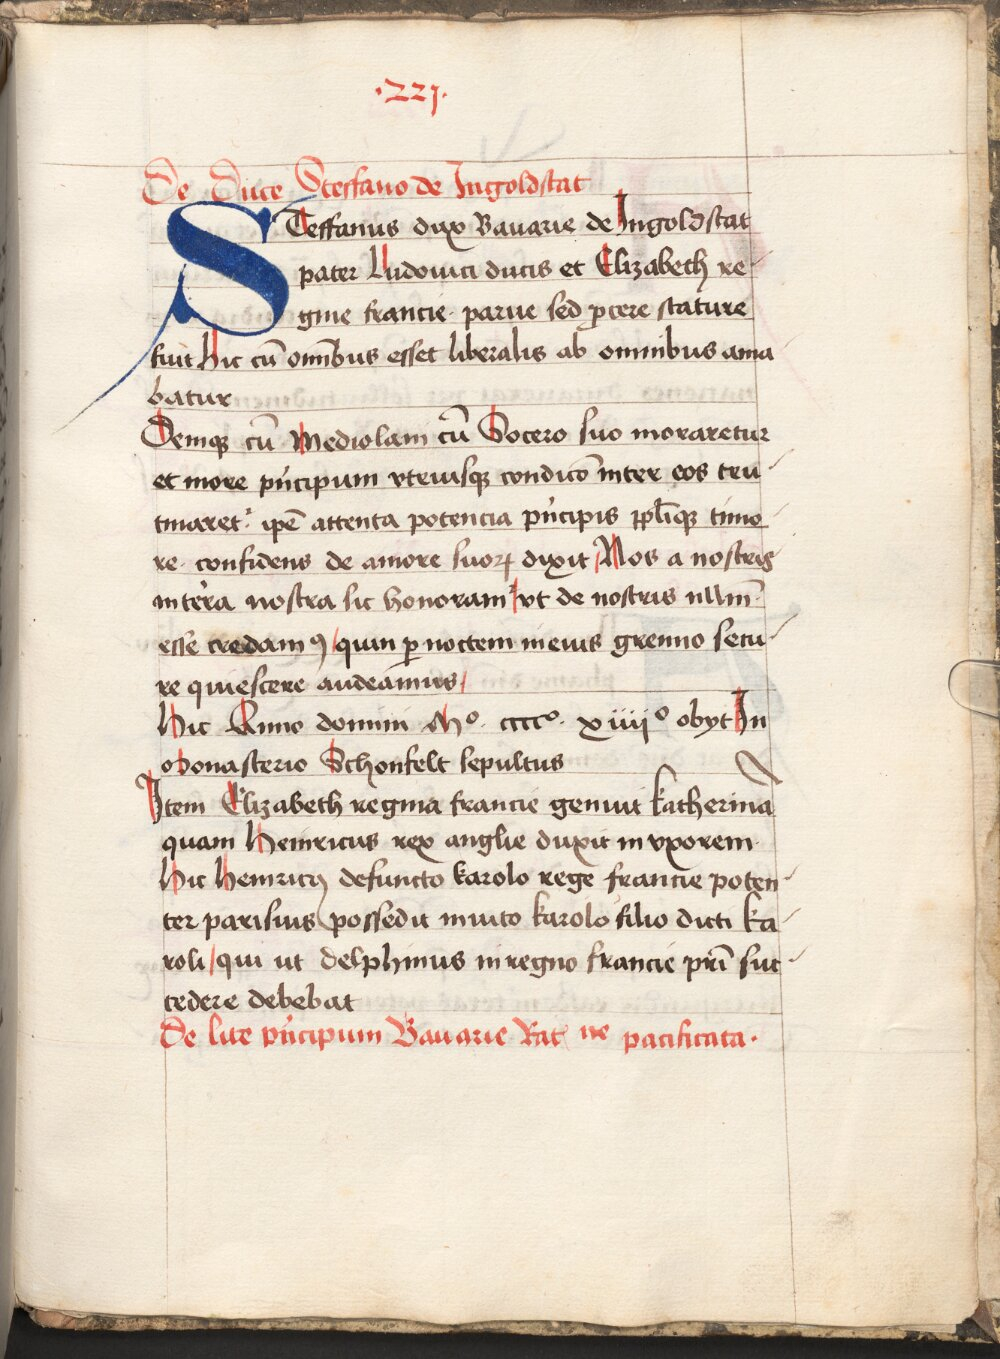 ·221·
De Duce Steffano de Ingoldstat
STeffanus dux Bauarie de Ingoldstat
pater Ludouici ducis et Elizabeth re
gine francie. parue sed p̱cere stature
fuit hic cū om̄ibus esset liberalis ab omnibus ama
batur
Demqꝫ cū Mediolani cū Socero suo moraretur
et more pͥncipum vtriusqꝫ condicō inter eos tru
tinaret᷑ ipē attenta potencia pͥncipis timo
re confidens de amore suoꝝ dixit Nos a nostris
nostra sic honoram᷑ vt de nostris
esse credamꝯ quin ꝑ noctem in eius gremio secu
re quiescere audeamus
Hic Anno domini Mº ccccº xiiijº obyt In
Monasterio Schonfelt sepultus
Item Elizabeth regina francie genuit katherinā
quam Heinricus rex anglie duxit in vxorem
Hic Heinricꝯ defuncto karolo rege francie poten
ter parisius possedit inuito karolo filio dicti ka
roli qui ut delphinus in regno francie pr̄i suc
cedere debebat
De lite pͥncipum Bauarie Rat ne pacificata·